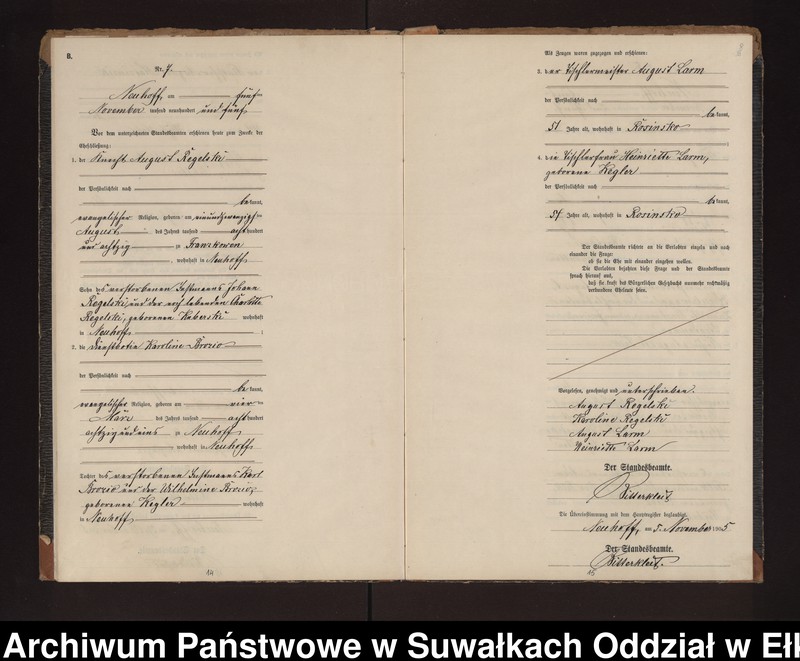 8.
Nr. 7.
Neuhoff, am fünf
November tausend neunhundert und fünf
Vor dem unterzeichneten Standesbeamten erschienen heute zum Zwecke der
Eheschließung:
1. der Knecht August Regelski
der Persönlichkeit nach
bekannt,
evangelischer Religion, geboren am einundzwanzigsten
August des Jahres tausend achthundert
und achtzig zu
, wohnhaft in Neuhoff
Sohn des verstorbenen Instmanns Johann
Regelski und der noch lebenden Charlotte
Regelski, geborenen Kuberski wohnhaft
in Neuhoff
2. die Dienstbotin Karoline Brozio
der Persönlichkeit nach
bekannt,
evangelischer Religion, geboren am vierten
März des Jahres tausend achthundert
achtzig und eins zu Neuhoff
, wohnhaft in Neuhoff
Tochter des verstorbenen Instmanns Karl
Brozio und der Wilhelmine Brozio,
geborenen Kegler wohnhaft
in Neuhoff
14
Als Zeugen waren zugezogen und erschienen:
3. der Tischlermeister August Larm
der Persönlichkeit nach
bekannt,
51 Jahre alt, wohnhaft in Rosinsko
4. die Tischlerfrau Heinriette Larm,
geborene Kegler
der Persönlichkeit nach
bekannt,
54 Jahre alt, wohnhaft in Rosinsko
Der Standesbeamte richtete an die Verlobten einzeln und nach
einander die Frage:
ob sie die Ehe mit einander eingehen wollen.
Die Verlobten bejahten diese Frage und der Standesbeamte
sprach hierauf aus,
daß sie kraft des Bürgerlichen Gesetzbuchs nunmehr rechtmäßig
verbundene Eheleute seien.
Vorgelesen, genehmigt und unterschrieben.
August Regelski
Karoline Regelski
August Larm
Heinriette Larm
Der Standesbeamte.
Bitterkleit
Die Übereinstimmung mit dem Hauptregister beglaubigt.
Neuhoff, am 5. November 1905
Der Standesbeamte.
Bitterkleit.
15
Archiwum Państwowe w Suwałkach Oddział w Ełk